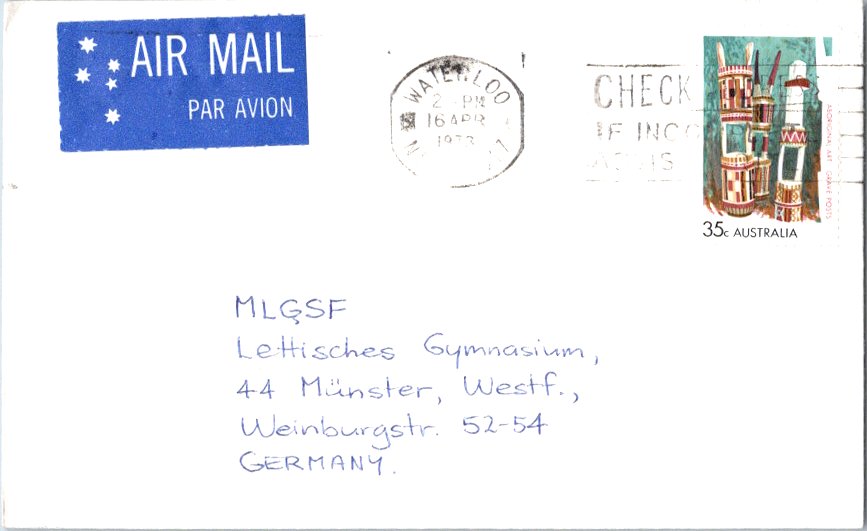 AIR MAIL
PAR AVION
WATERLOO
PM
16 APR
1973
CHECK
IF INCO
35c AUSTRALIA
ABORIGINAL ART GRAVE POSTS
MLGSF
Lettisches Gymnasium,
44 Münster, Westf.,
Weinburgstr. 52-54
GERMANY.